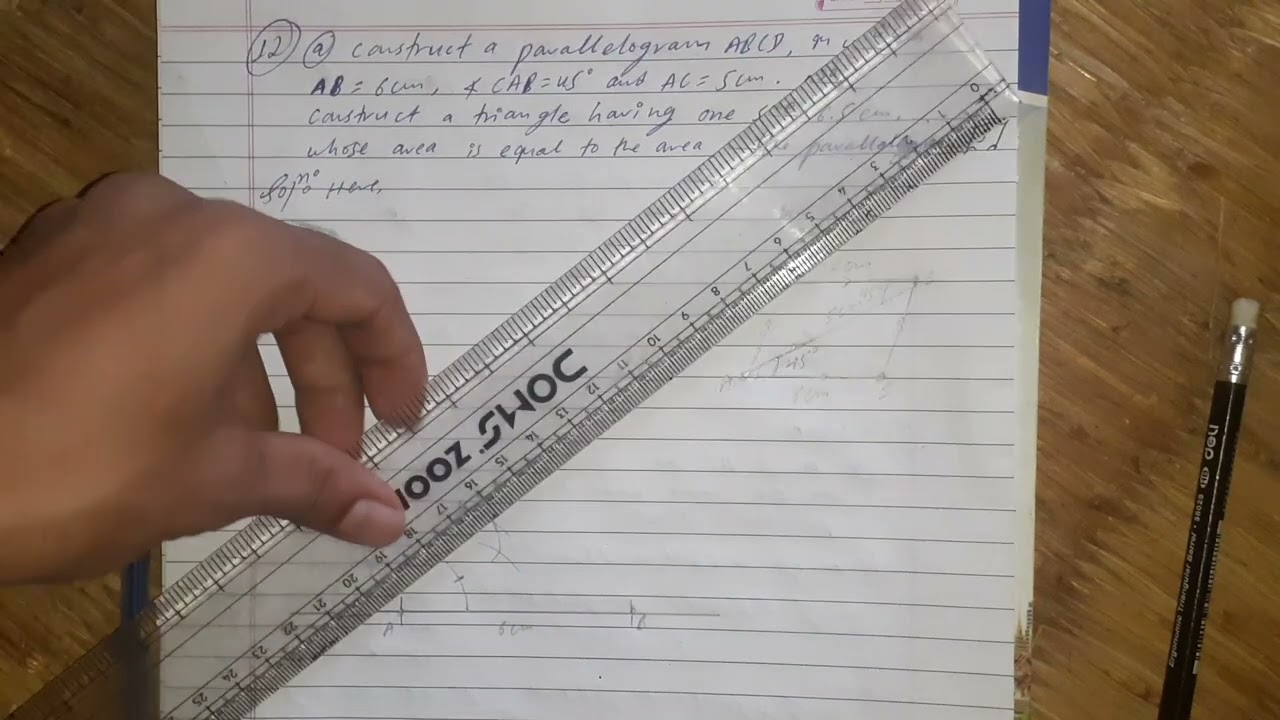 12 a construct a parallelogram ABCD, in
AB = 6cm, ∡ CAB = 45° and AC = 5cm.
construct a triangle having one 6.5cm,
whose area is equal to the area parallelogram
Solⁿ: Here,
0 3 4 5 6 7 8 9 10 11 12 13 14 15 16 17 18 19 20 21 22 23 24 25
DOMS ZOOM
5cm 45°
A 45° B
A 6cm B
deli
HB 58029
Ergonomic Triangular Barrel